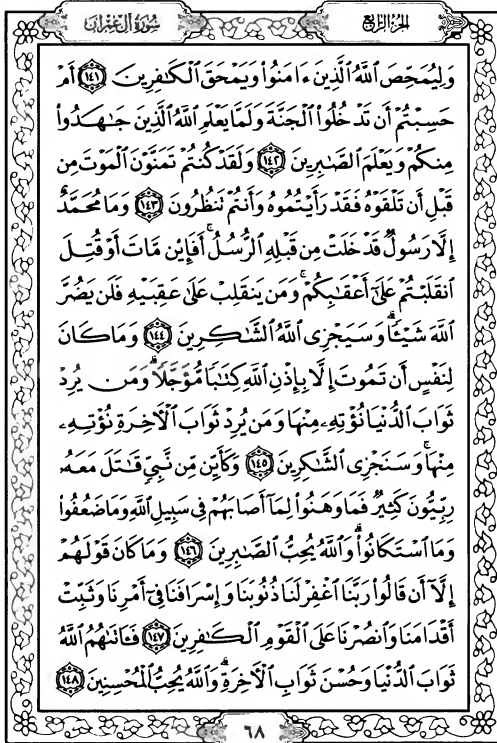 سُورَةُ آلِ عِمْرَان
الجُزْءُ الرَّابِع
وَلِيُمَحِّصَ ٱللَّهُ ٱلَّذِينَ ءَامَنُوا۟ وَيَمْحَقَ ٱلْكَـٰفِرِينَ ١٤١ أَمْ
حَسِبْتُمْ أَن تَدْخُلُوا۟ ٱلْجَنَّةَ وَلَمَّا يَعْلَمِ ٱللَّهُ ٱلَّذِينَ جَـٰهَدُوا۟
مِنكُمْ وَيَعْلَمَ ٱلصَّـٰبِرِينَ ١٤٢ وَلَقَدْ كُنتُمْ تَمَنَّوْنَ ٱلْمَوْتَ مِن
قَبْلِ أَن تَلْقَوْهُ فَقَدْ رَأَيْتُمُوهُ وَأَنتُمْ تَنظُرُونَ ١٤٣ وَمَا مُحَمَّدٌ
إِلَّا رَسُولٌ قَدْ خَلَتْ مِن قَبْلِهِ ٱلرُّسُلُ ۚ أَفَإِي۟ن مَّاتَ أَوْ قُتِلَ
ٱنقَلَبْتُمْ عَلَىٰٓ أَعْقَـٰبِكُمْ ۚ وَمَن يَنقَلِبْ عَلَىٰ عَقِبَيْهِ فَلَن يَضُرَّ
ٱللَّهَ شَيْـًٔا ۗ وَسَيَجْزِى ٱللَّهُ ٱلشَّـٰكِرِينَ ١٤٤ وَمَا كَانَ
لِنَفْسٍ أَن تَمُوتَ إِلَّا بِإِذْنِ ٱللَّهِ كِتَـٰبًا مُّؤَجَّلًا ۗ وَمَن يُرِدْ
ثَوَابَ ٱلدُّنْيَا نُؤْتِهِۦ مِنْهَا وَمَن يُرِدْ ثَوَابَ ٱلْـَٔاخِرَةِ نُؤْتِهِۦ
مِنْهَا ۚ وَسَنَجْزِى ٱلشَّـٰكِرِينَ ١٤٥ وَكَأَيِّن مِّن نَّبِىٍّ قَـٰتَلَ مَعَهُۥ
رِبِّيُّونَ كَثِيرٌ فَمَا وَهَنُوا۟ لِمَآ أَصَابَهُمْ فِى سَبِيلِ ٱللَّهِ وَمَا ضَعُفُوا۟
وَمَا ٱسْتَكَانُوا۟ ۗ وَٱللَّهُ يُحِبُّ ٱلصَّـٰبِرِينَ ١٤٦ وَمَا كَانَ قَوْلَهُمْ
إِلَّآ أَن قَالُوا۟ رَبَّنَا ٱغْفِرْ لَنَا ذُنُوبَنَا وَإِسْرَافَنَا فِىٓ أَمْرِنَا وَثَبِّتْ
أَقْدَامَنَا وَٱنصُرْنَا عَلَى ٱلْقَوْمِ ٱلْكَـٰفِرِينَ ١٤٧ فَـَٔاتَىٰهُمُ ٱللَّهُ
ثَوَابَ ٱلدُّنْيَا وَحُسْنَ ثَوَابِ ٱلْـَٔاخِرَةِ ۗ وَٱللَّهُ يُحِبُّ ٱلْمُحْسِنِينَ ١٤٨
٦٨